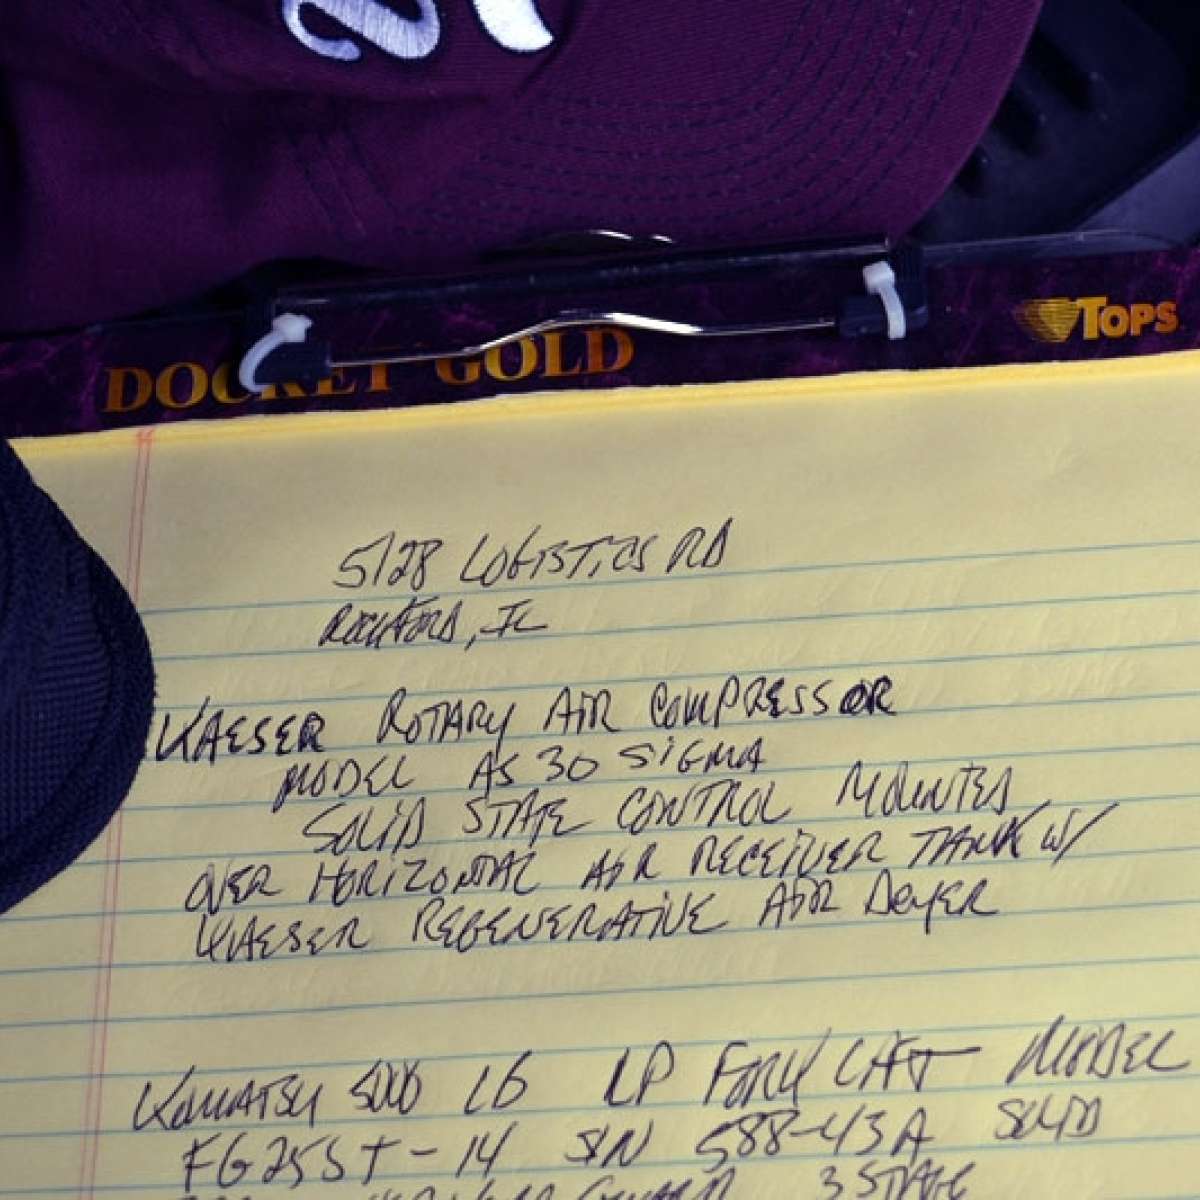 DOCKET GOLD
TOPS
5128 LOGISTICS RD
ROCKFORD, IL
KAESER ROTARY AIR COMPRESSOR
MODEL AS 30 SIGMA
SOLID STATE CONTROL MOUNTED
OVER HORIZONTAL AIR RECEIVER TANK W/
KAESER REGENERATIVE AIR DRYER
KOMATSU 5000 LB LP FORK LIFT MODEL
FG25ST-14 S/N 588-43A SOLID
3 STAGE